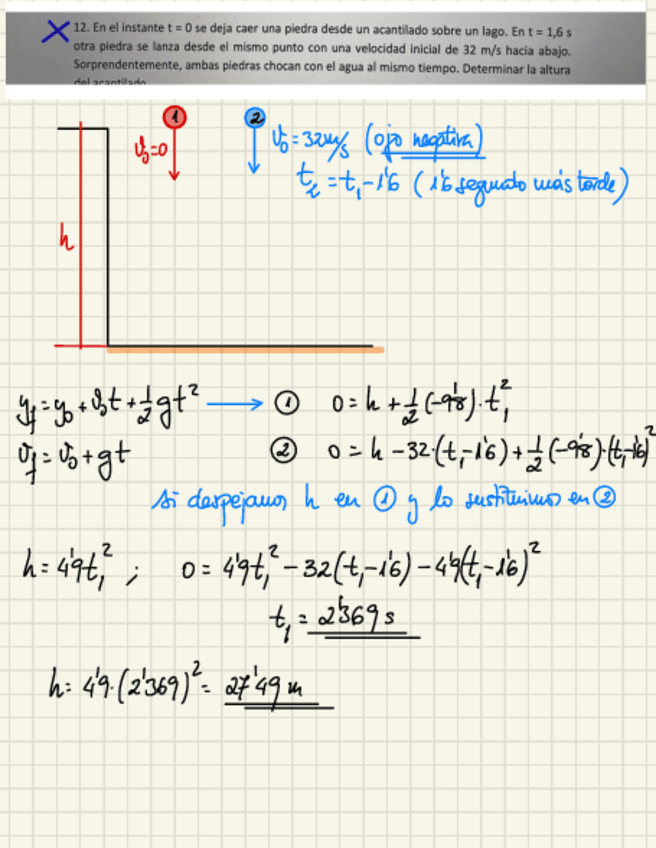 12. En el instante t = 0 se deja caer una piedra desde un acantilado sobre un lago. En t = 1,6 s
otra piedra se lanza desde el mismo punto con una velocidad inicial de 32 m/s hacia abajo.
Sorprendentemente, ambas piedras chocan con el agua al mismo tiempo. Determinar la altura
del acantilado
1
2
v₀=0
v₀=32m/s (ojo negativa)
t₂=t₁-1'6 (1'6 segundo más tarde)
h
y_f=y₀+v₀t+½gt² → ① 0=h+½(-9'8)·t₁²
v_f=v₀+gt ② 0=h-32·(t₁-1'6)+½(-9'8)·(t₁-1'6)²
si despejamos h en ① y lo sustituimos en ②
h=4'9t₁² ; 0=4'9t₁²-32(t₁-1'6)-4'9(t₁-1'6)²
t₁=2'369 s
h=4'9·(2'369)²=27'49 m